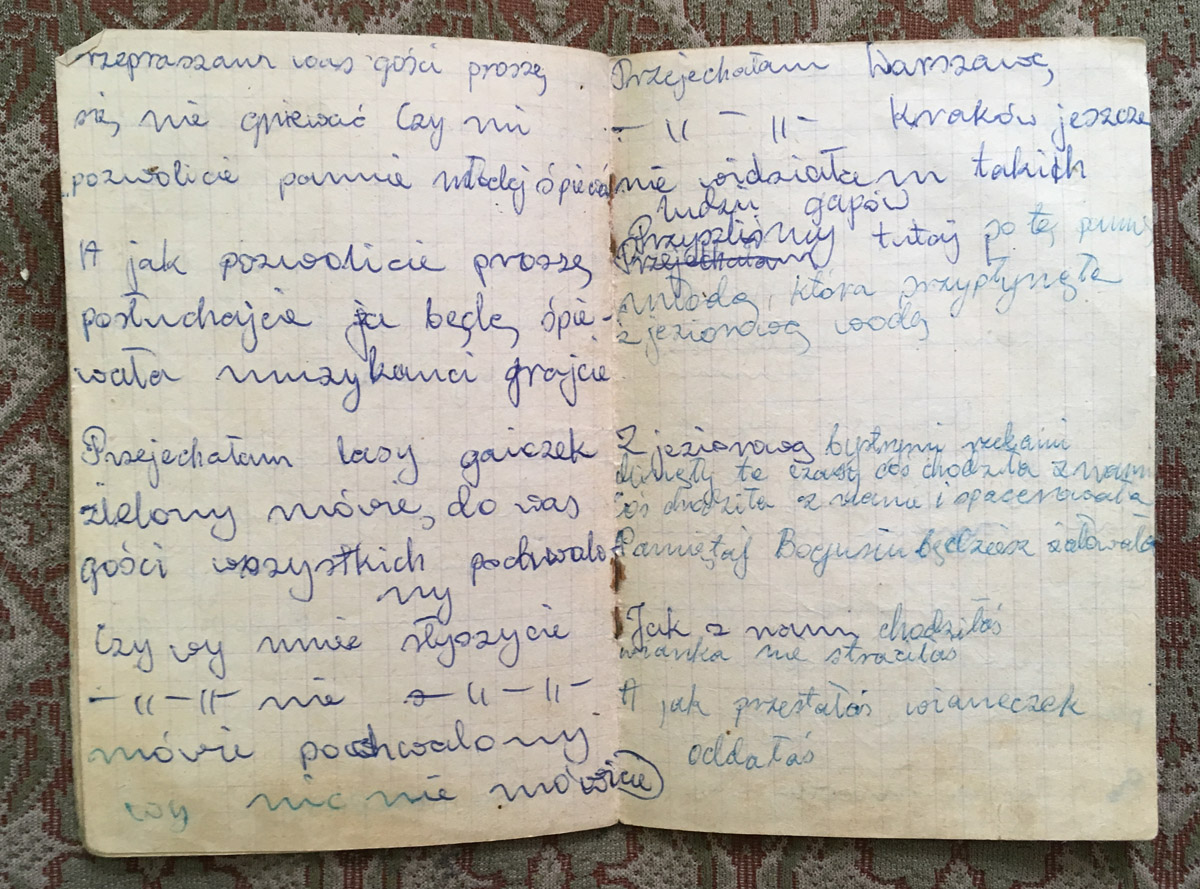 rzepraszam was gości proszę
się nie gniewać Czy mi
pozwolicie pannie młodej śpiewa
A jak pozwolicie proszę
posłuchajcie ja będę śpie-
wała muzykanci grajcie
Przejechałam lasy gaiczek
zielony mówię do was
gości wszystkich pochwalo
ny
Czy wy mnie słyszycie
-〃-〃- nie -〃-〃-
mówie pochwalony
wy nic nie mówicie
Przejechałam Warszawę
-〃-〃- Kraków jeszcze
nie widziałam takich
ludzii gapów
Przyszliśmy tutaj po tę pannę
Przejechałam
młodą, która przypłynęła
z jeziorową wodą
Z jeziorową bystrymi rzekami
minęły te czasy coś chodziła z nami
coś chodziła z nami i spacerowała
Pamiętaj Bogusiu będziesz żałowała
Jak z nami chodziłaś
wianka nie straciłaś
A jak przestałaś wianeczek
oddałaś